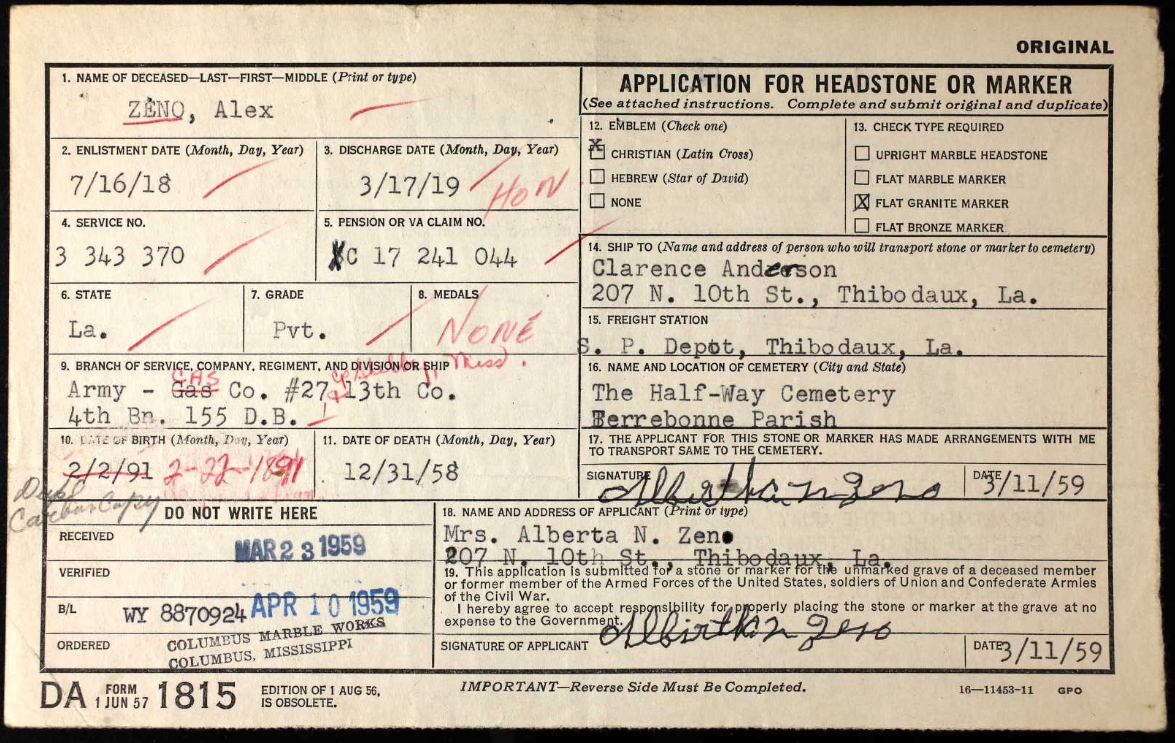 ORIGINAL
1. NAME OF DECEASED—LAST—FIRST—MIDDLE (Print or type)
ZENO, Alex
2. ENLISTMENT DATE (Month, Day, Year)
7/16/18
3. DISCHARGE DATE (Month, Day, Year)
3/17/19
HON
4. SERVICE NO.
3 343 370
5. PENSION OR VA CLAIM NO.
XC 17 241 044
6. STATE
La.
7. GRADE
Pvt.
8. MEDALS
NONE
9. BRANCH OF SERVICE, COMPANY, REGIMENT, AND DIVISION OR SHIP
Miss.
CAS
Army - Gas Co. #27 13th Co.
4th Bn. 155 D.B.
10. DATE OF BIRTH (Month, Day, Year)
2/2/91 2-22-1891
11. DATE OF DEATH (Month, Day, Year)
12/31/58
Dupl
Carbon Copy
DO NOT WRITE HERE
RECEIVED
MAR 23 1959
VERIFIED
B/L
WY 8870924 APR 10 1959
ORDERED
COLUMBUS MARBLE WORKS
COLUMBUS, MISSISSIPPI
APPLICATION FOR HEADSTONE OR MARKER
(See attached instructions. Complete and submit original and duplicate)
12. EMBLEM (Check one)
X
CHRISTIAN (Latin Cross)
HEBREW (Star of David)
NONE
13. CHECK TYPE REQUIRED
UPRIGHT MARBLE HEADSTONE
FLAT MARBLE MARKER
X FLAT GRANITE MARKER
FLAT BRONZE MARKER
14. SHIP TO (Name and address of person who will transport stone or marker to cemetery)
Clarence Anderson
207 N. 10th St., Thibodaux, La.
15. FREIGHT STATION
S. P. Depot, Thibodaux, La.
16. NAME AND LOCATION OF CEMETERY (City and State)
The Half-Way Cemetery
Terrebonne Parish
17. THE APPLICANT FOR THIS STONE OR MARKER HAS MADE ARRANGEMENTS WITH ME
TO TRANSPORT SAME TO THE CEMETERY.
SIGNATURE
DATE
3/11/59
18. NAME AND ADDRESS OF APPLICANT (Print or type)
Mrs. Alberta N. Zeno
207 N. 10th St., Thibodaux, La.
19. This application is submitted for a stone or marker for the unmarked grave of a deceased member
or former member of the Armed Forces of the United States, soldiers of Union and Confederate Armies
of the Civil War.
I hereby agree to accept responsibility for properly placing the stone or marker at the grave at no
expense to the Government.
SIGNATURE OF APPLICANT
DATE
3/11/59
DA FORM 1 JUN 57 1815
EDITION OF 1 AUG 56,
IS OBSOLETE.
IMPORTANT—Reverse Side Must Be Completed.
16—11453-11 GPO